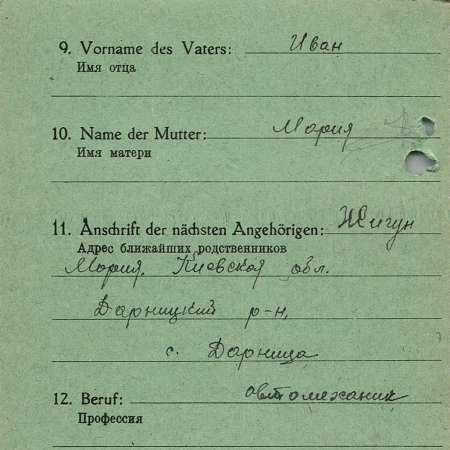 9. Vorname des Vaters: Иван
Имя отца
10. Name der Mutter: Мария
Имя матери
11. Anschrift der nächsten Angehörigen: Жигун
Адрес ближайших родственников
Мария. Киевская обл.
Дарницкий р-н,
с. Дарница
12. Beruf: автомеханик
Профессия